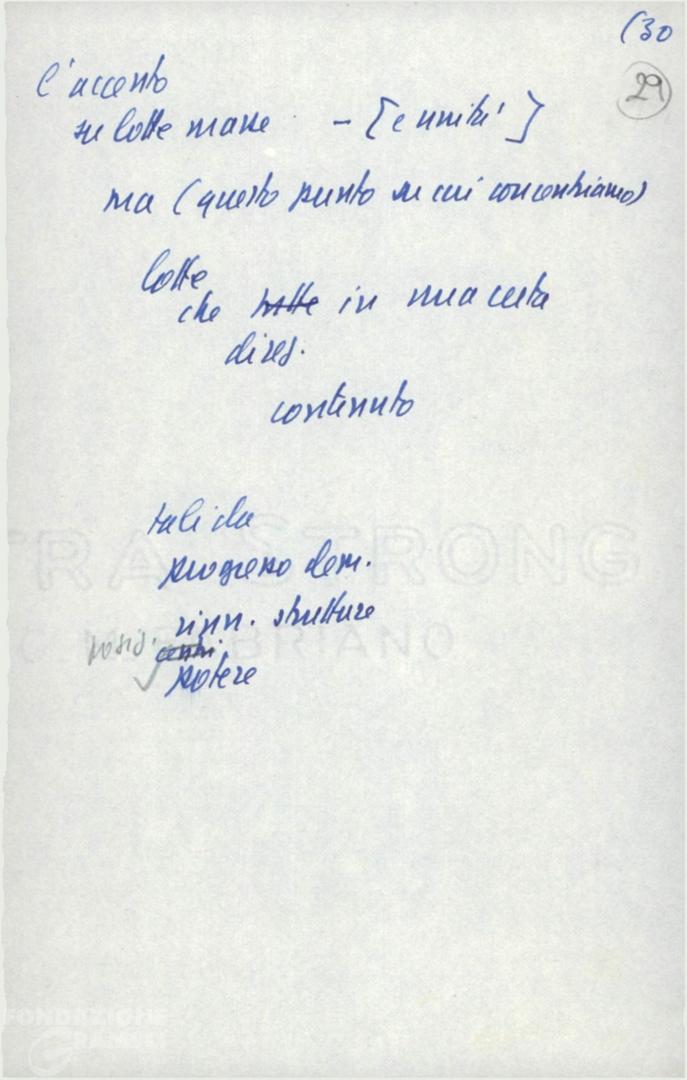 (30
29
l'accento
su lotte masse - [e unità]
ma (questo punto su cui concentriamo)
lotte
che tutte in una certa
direz.
contenuto
tali da
progresso dem.
rinn. strutture
posiz.
centri
potere
EXTRA STRONG
FABRIANO
FONDAZIONE
GRAMSCI